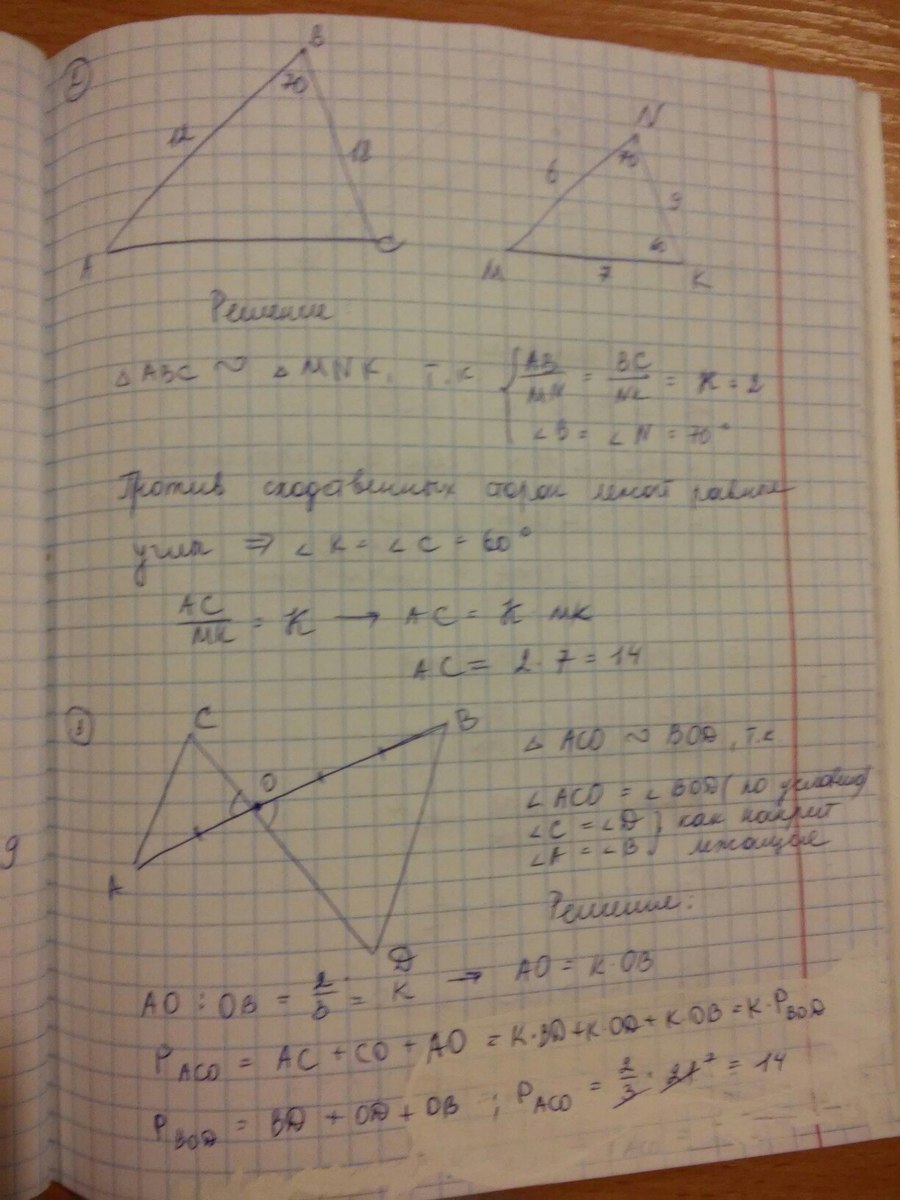 2
B
70
12
18
A
C
N
70
6
9
60
M
7
K
Решение:
△ ABC ~ △ MNK, т.к
AB/MN = BC/NK = K = 2
∠B = ∠N = 70°
Против сходственных сторон лежат равные
углы ⇒ ∠K = ∠C = 60°
AC/MK = K → AC = K MK
AC = 2 · 7 = 14
3
C
B
O
A
D
△ ACO ~ BOD, т.к.
∠ACO = ∠BOD (по условию)
∠C = ∠D } как накрест
∠A = ∠B } лежащие
Решение:
AO : OB = 2/3 = K → AO = K · OB
P ACO = AC + CO + AO = K·BD + K·OD + K·OB = K · P BOD
P BOD = BD + OD + OB ; P ACO = 2/3 · 21 7 = 14
9